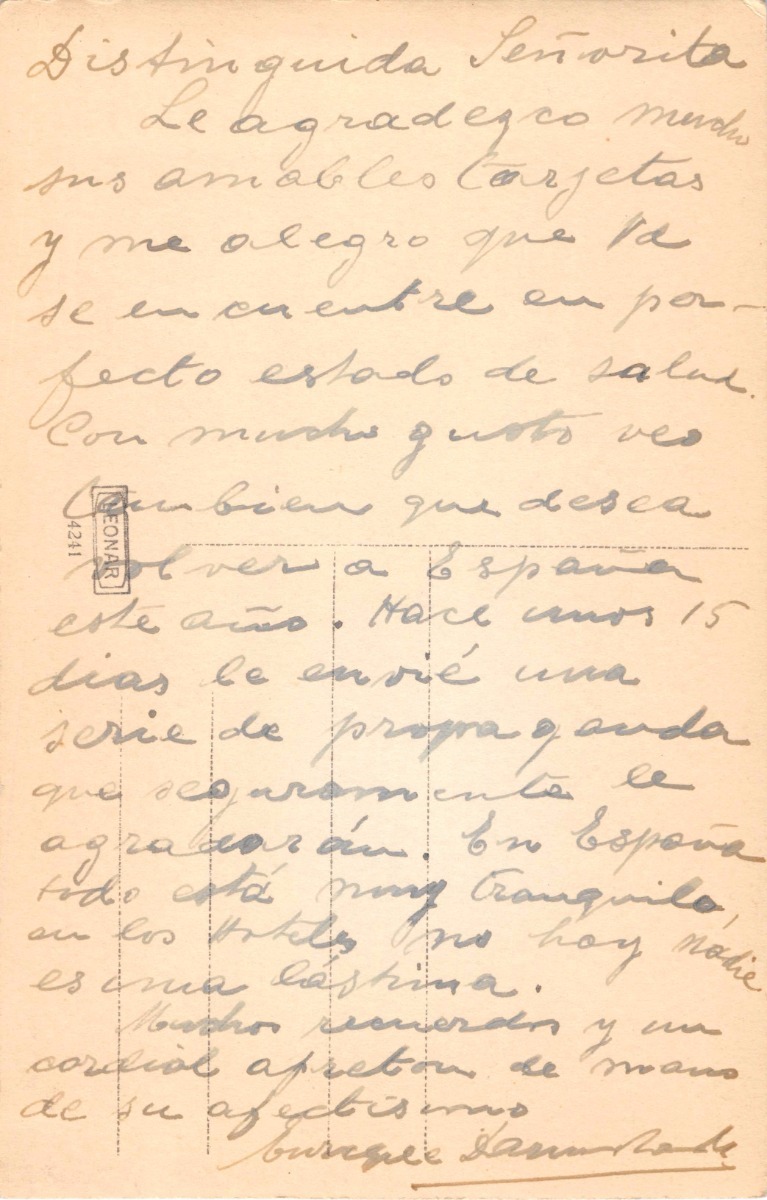 Distinguida Señorita
Le agradezco mucho
sus amables tarjetas
y me alegro que Vd
se encuentre en per-
fecto estado de salud.
Con mucho gusto veo
tambien que desea
volver a España
este año. Hace unos 15
dias le envié una
serie de propaganda
que seguramente le
agradarán. En España
todo está muy tranquilo,
en los Hoteles no hay nadie
es una lástima.
Muchos recuerdos y un
cordial apreton de mano
de su afectisimo
Enrique
LEONAR
4241